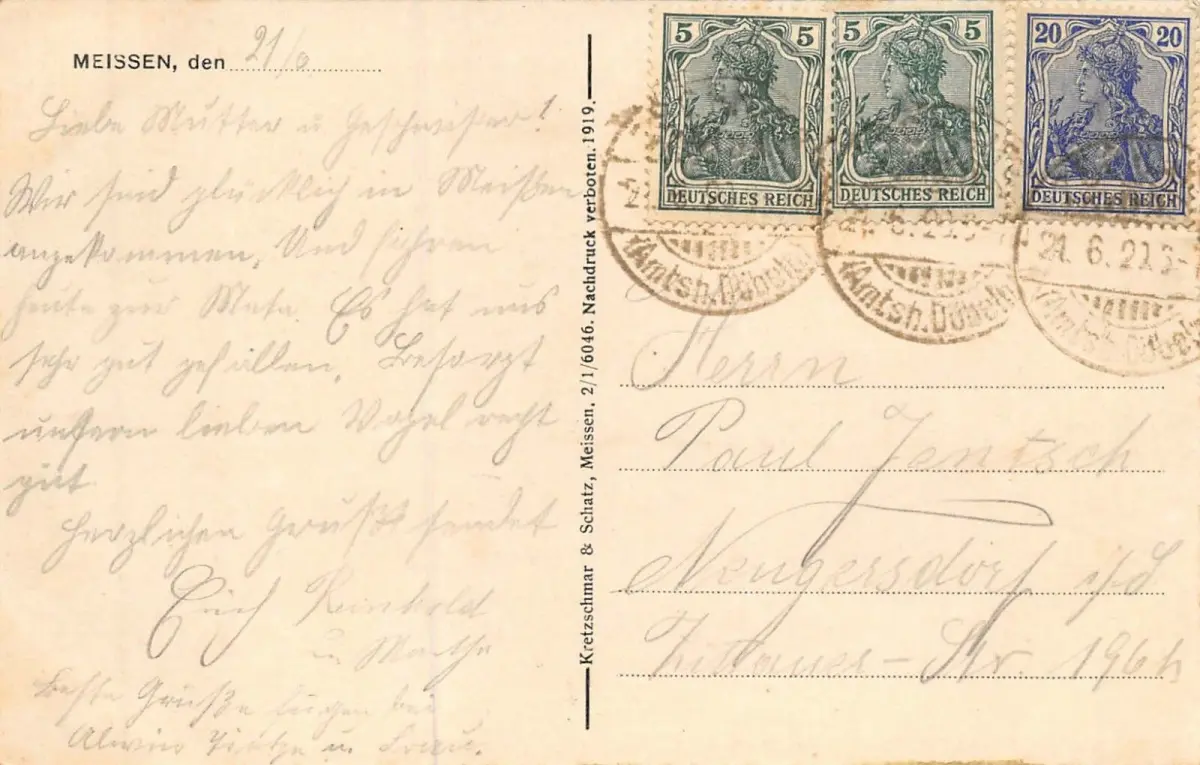 MEISSEN, den 21/6
Liebe Mutter u Geschwister!
Wir sind glücklich in Meißen
angekommen, Und fahren
heute zur Mata. Es hat uns
sehr gut gefallen, Besorgt
unsern lieben Vogel recht
gut
Herzlichen Gruß sendet
Erich Reinhold
u Martha
Beste Grüße liegen bei
u Frau.
Kretzschmar & Schatz, Meissen, 2/1/6046. Nachdruck verboten. 1919.
5 5
DEUTSCHES REICH
5 5
DEUTSCHES REICH
20 20
DEUTSCHES REICH
(Amtsh. Döbeln)
21. 6. 20
(Amtsh. Döbeln)
21. 6. 20
(Amtsh. Döbeln)
Herrn
Paul Jentzsch
Neugersdorf i/S
Zittauer-Str. 196h